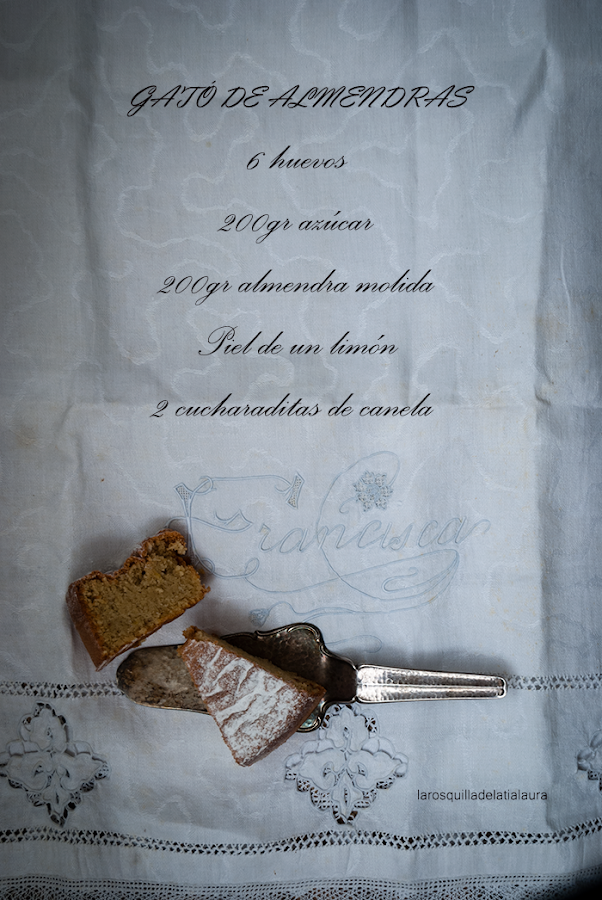 GATÓ DE ALMENDRAS
6 huevos
200gr azúcar
200gr almendra molida
Piel de un limón
2 cucharaditas de canela
Francisca
larosquilladelatialaura